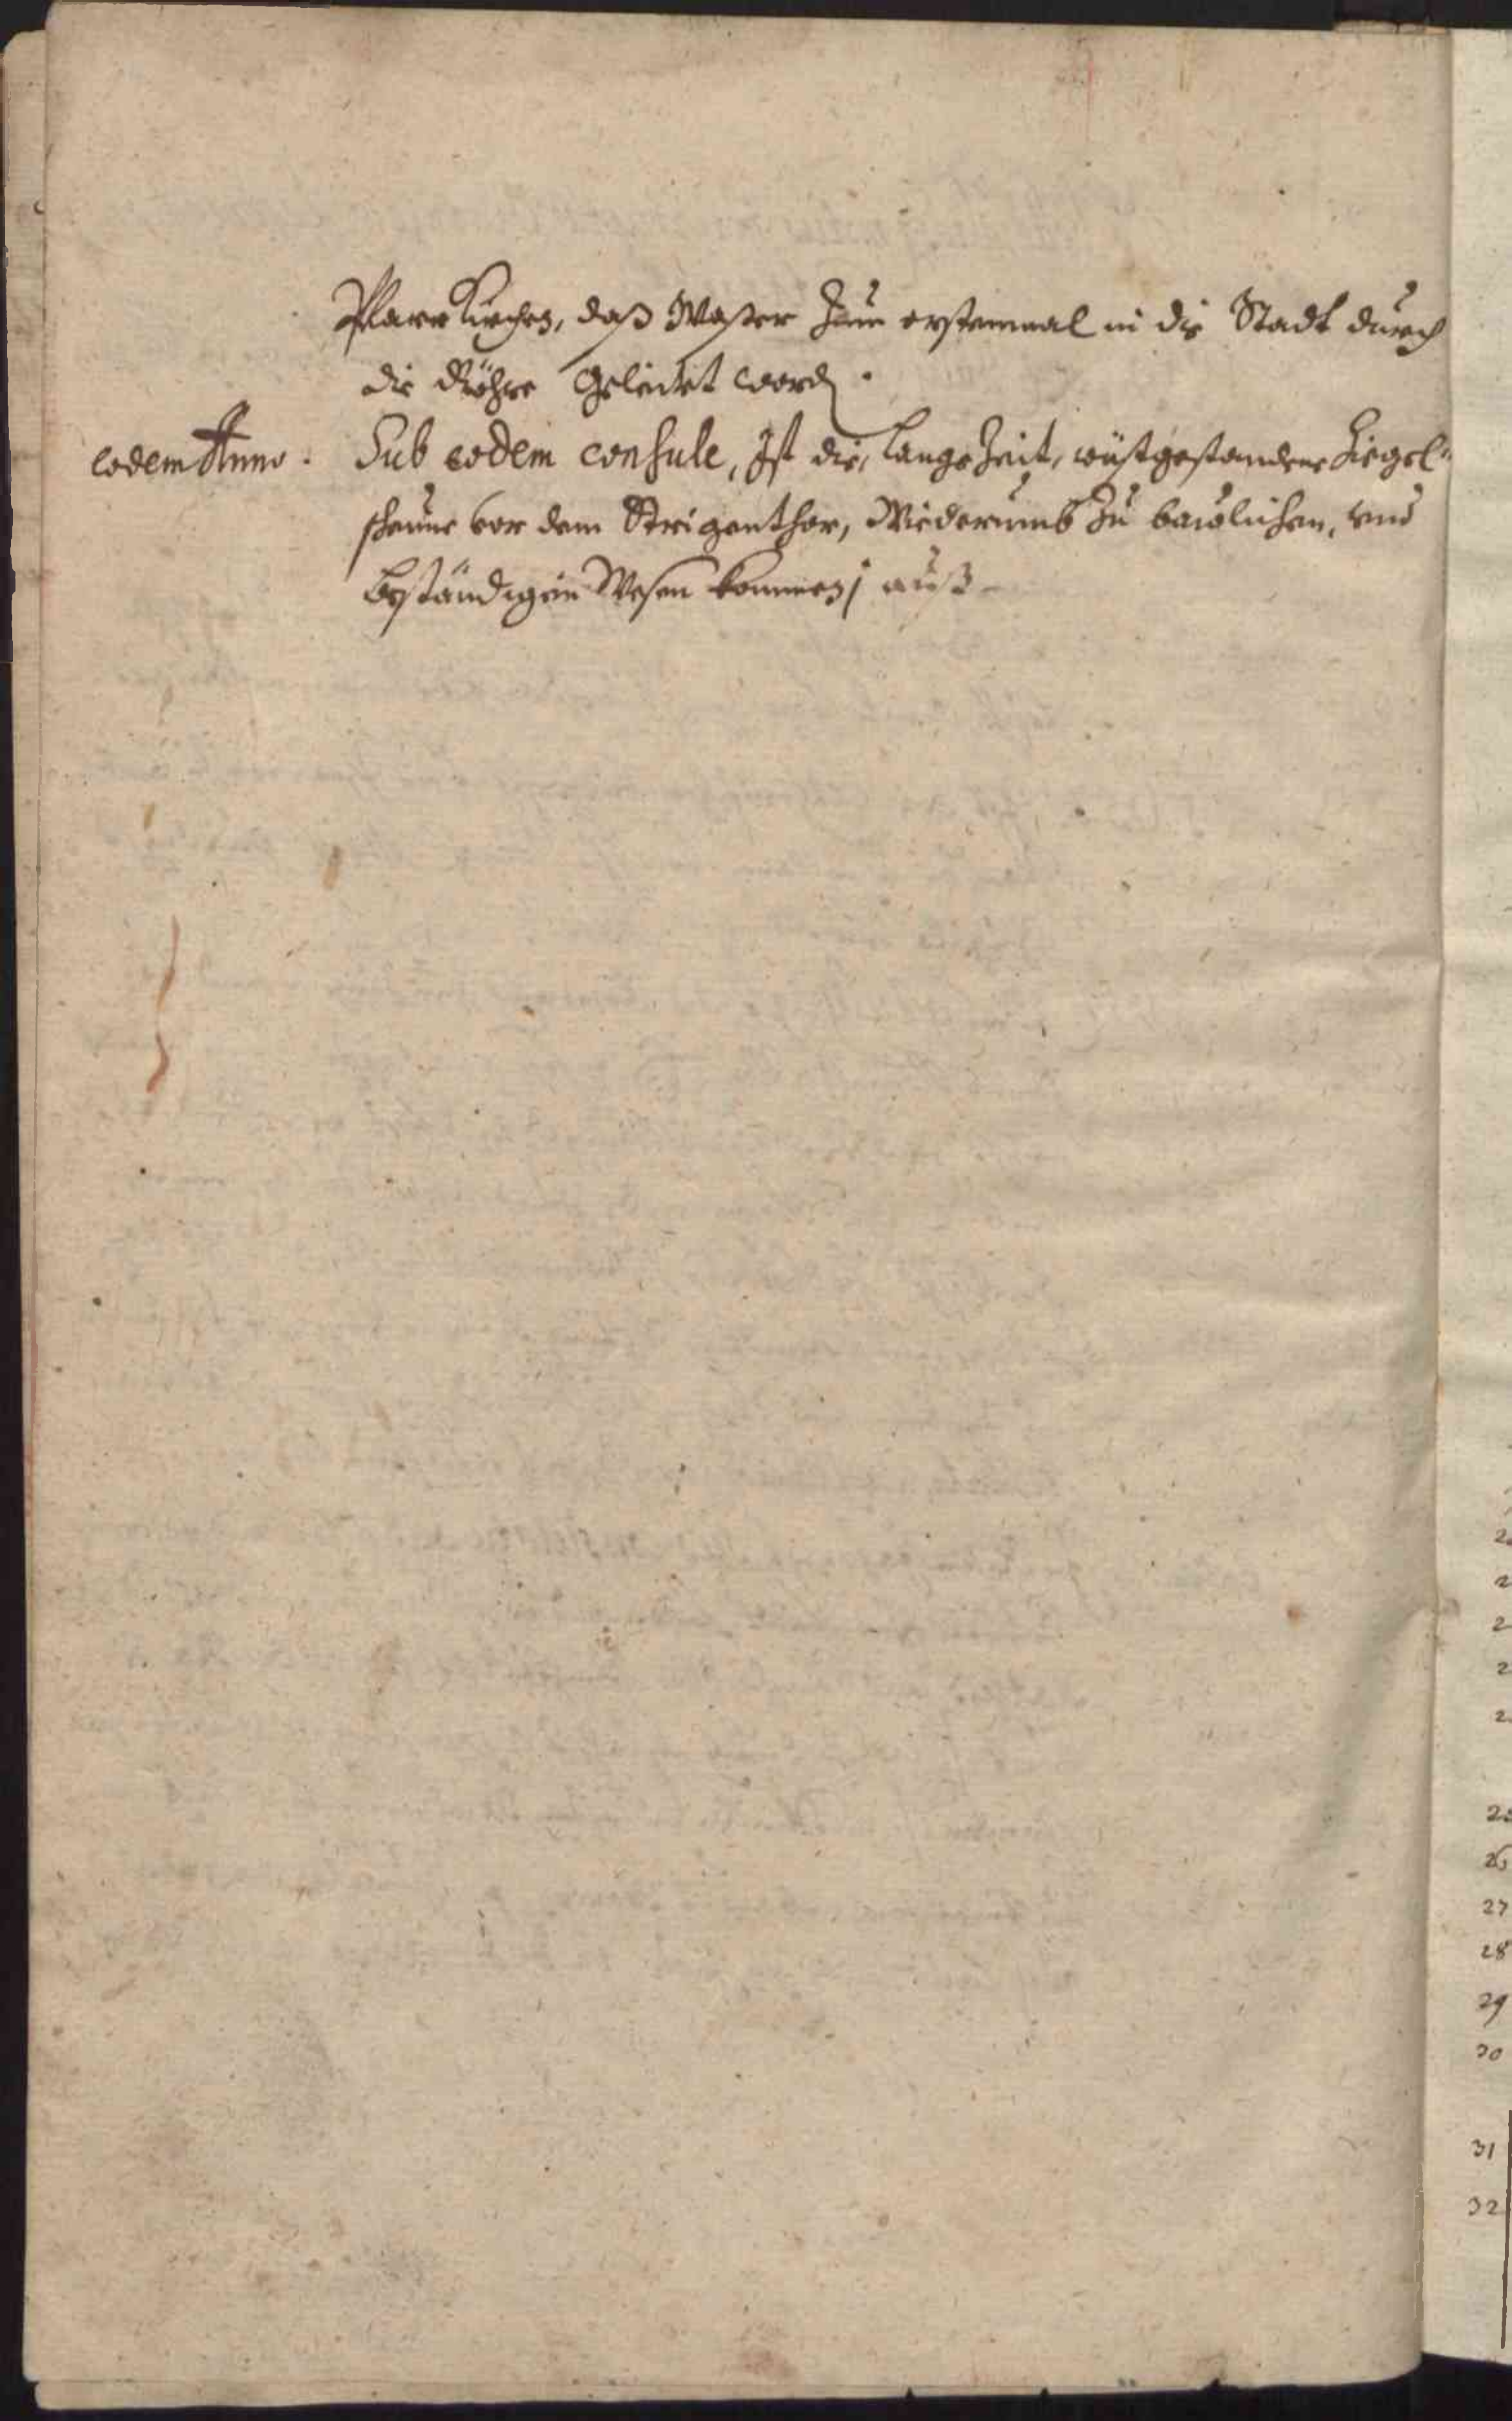 PfarrKirchen, daß Waßer Zum erstenmal in die Stadt durch
die Röhre Geleitet word.
eodem Anno. Sub eodem consule, Ist die, lange Zeit, wüstgestandene Ziegel-
scheune vor dem Strigenthor, Wiederumb Zu bawlichen, und
beständigen Wesen kommen auß
27
28
29
30
31
32